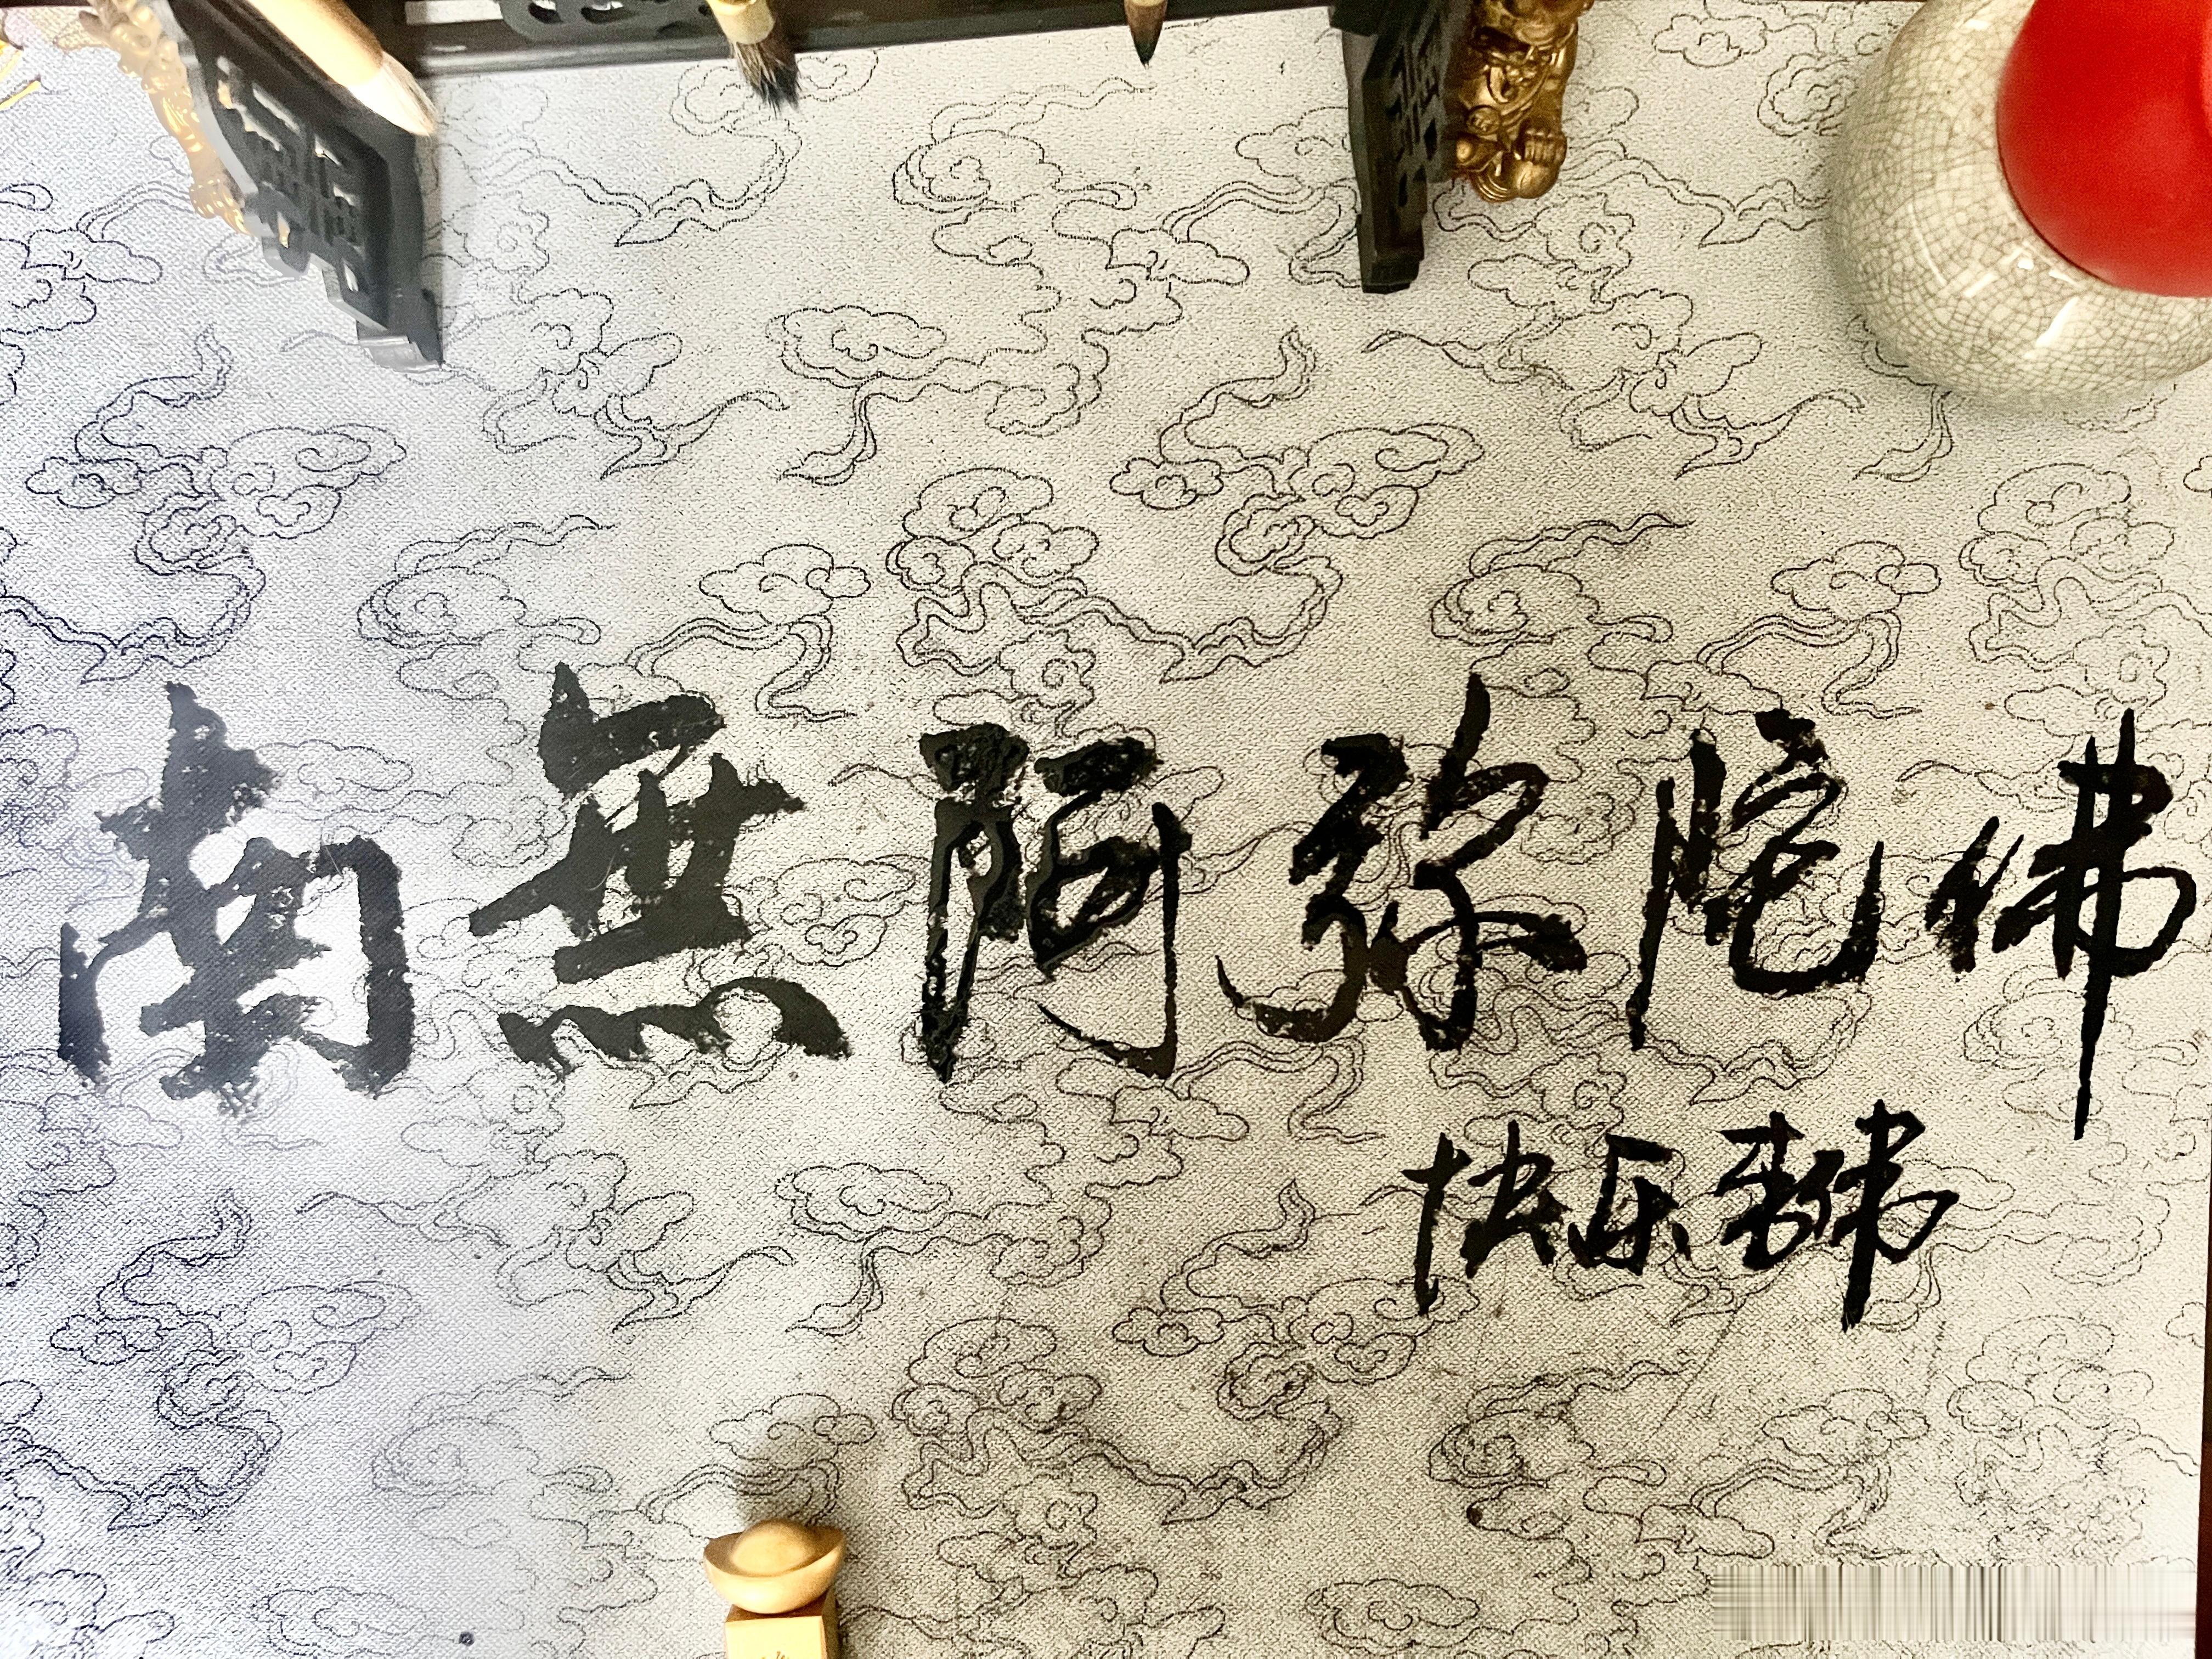 南無阿弥陀佛
快乐